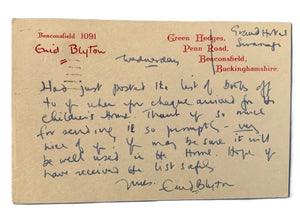 Beaconsfield 1091
Enid Blyton
Green Hedges,
Penn Road,
Beaconsfield,
Buckinghamshire.
Grand Hotel
Swanage
Wednesday
Had just posted the list of books off
to you when your cheque arrived for the
Children's Home. Thank you so much
for sending it so promptly - very
nice of you. You may be sure it will
be well used in the Home. Hope you
have received the list safely
Enid Blyton